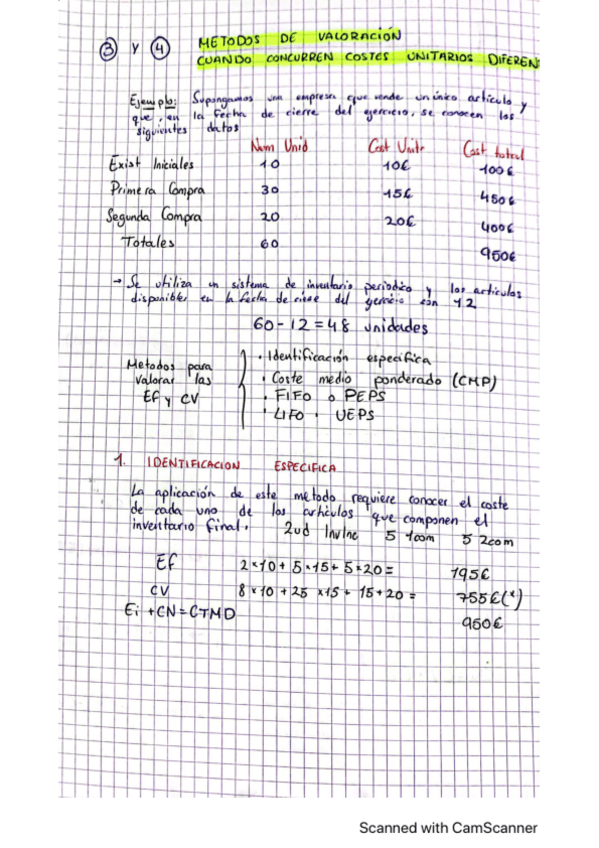 ③ Y ④ METODOS DE VALORACIÓN
CUANDO CONCURREN COSTES UNITARIOS DIFEREN
Ejemplo: Supongamos una empresa que vende un único articulo y
que, en la fecha de cierre del ejercicio, se conocen los
siguientes datos
Num Unid Cost Unit Cost total
Exist Iniciales 10 10€ 100€
Primera Compra 30 15€ 450€
Segunda Compra 20 20€ 400€
Totales 60 950€
→ Se utiliza un sistema de inventario periodico y los articulos
disponibles en la fecha de cierre del ejercicio son 12
60-12=48 unidades
Metodos para valorar las EF y CV
· Identificación especifica
· Coste medio ponderado (CMP)
· FIFO o PEPS
· LIFO · UEPS
1. IDENTIFICACION ESPECIFICA
La aplicación de este metodo requiere conocer el coste
de cada uno de los articulos que componen el
inventario final. 2ud InvInc 5 1com 5 2com
EF 2×10+5×15+5×20= 195€
CV 8×10+25×15+15+20= 755€(*)
Ei +CN=CTMD 950€
Scanned with CamScanner